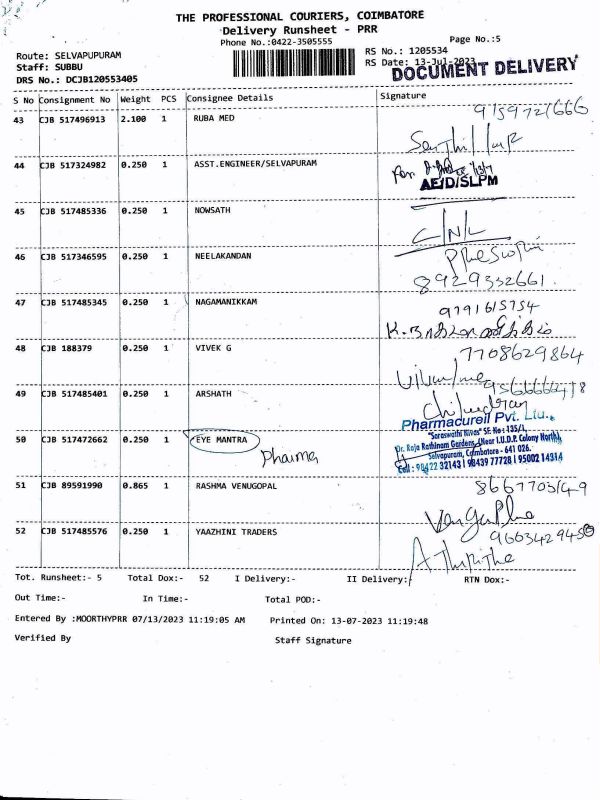 THE PROFESSIONAL COURIERS, COIMBATORE
Delivery Runsheet - PRR
Phone No.:0422-3505555
Page No.:5
Route: SELVAPUPURAM
RS No.: 1205534
Staff: SUBBU
RS Date: 13-Jul-2023
DRS No.: DCJB120553405
DOCUMENT DELIVERY
S No Consignment No Weight PCS Consignee Details Signature
43 CJB 517496913 2.100 1 RUBA MED
44 CJB 517324982 0.250 1 ASST.ENGINEER/SELVAPURAM
AE/D/SLPM
45 CJB 517485336 0.250 1 NOWSATH
C/N/L
46 CJB 517346595 0.250 1 NEELAKANDAN
8929332661
47 CJB 517485345 0.250 1 NAGAMANIKKAM
9791615754
48 CJB 188379 0.250 1 VIVEK G
7708629864
49 CJB 517485401 0.250 1 ARSHATH
Pharmacureil Pvt. Ltd.,
50 CJB 517472662 0.250 1 EYE MANTRA
Pharma
"Saraswathi Nivas" SF. No : 135/1,
Dr. Raja Rathinam Gardens, (Near I.U.D.P. Colony North),
Selvapuram, Coimbatore - 641 026.
Cell : 98422 32143 | 98439 77728 | 95002 14314
51 CJB 89591990 0.865 1 RASHMA VENUGOPAL
52 CJB 517485576 0.250 1 YAAZHINI TRADERS
Tot. Runsheet:- 5 Total Dox:- 52 I Delivery:- II Delivery:- RTN Dox:-
Out Time:- In Time:- Total POD:-
Entered By :MOORTHYPRR 07/13/2023 11:19:05 AM Printed On: 13-07-2023 11:19:48
Verified By Staff Signature